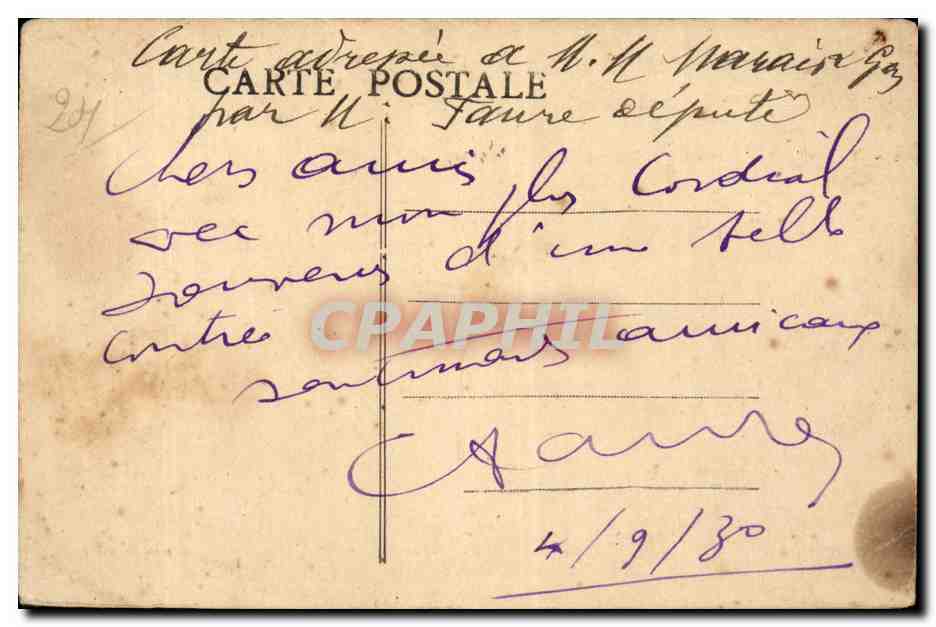 Carte adressée à M. M Marais
CARTE POSTALE
24
par M. Faure député
Chers amis
avec mon plus Cordial
souvenir d'une belle
contrée
CPAPHIL
sentiments amicaux
Faure
4/9/30